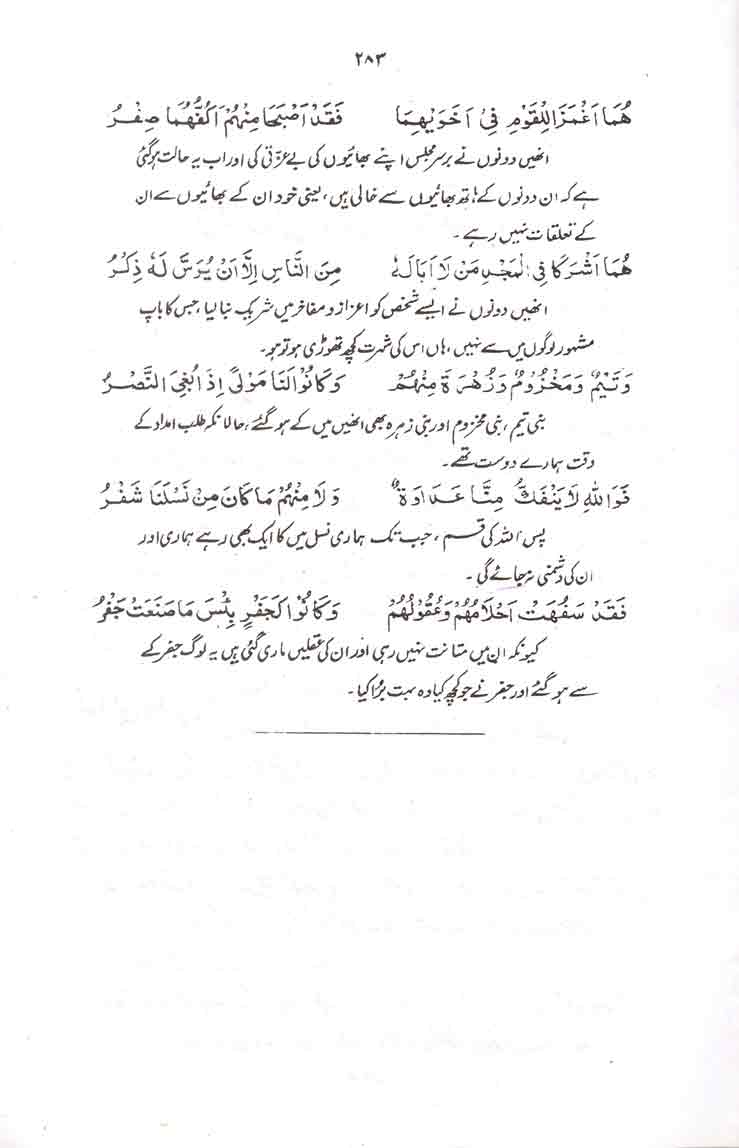 ۲۸۳
هُمَا اَغْمَزَا لِلْقَوْمِ فِیْ اَخَوَیْهِمَا فَقَدْ اَصْبَحَا مِنْهُمْ اَکُفُّهُمَا صِفْرُ
انھیں دونوں نے برسر مجلس اپنے بھائیوں کی بے عزتی کی اور اب یہ حالت ہوگئی
ہے کہ ان دونوں کے ہاتھ بھائیوں سے خالی ہیں، یعنی خود ان کے بھائیوں سے ان
کے تعلقات نہیں رہے۔
هُمَا اَشْرَکَا فِی الْمَجْدِ مَنْ لَا اَبَا لَهٗ مِنَ النَّاسِ اِلَّا اَنْ یُرَسَّ لَهٗ ذِکْرُ
انھیں دونوں نے ایسے شخص کو اعزاز و مفاخر میں شریک بنا لیا، جس کا باپ
مشہور لوگوں میں سے نہیں، ہاں اس کی شہرت کچھ تھوڑی ہو تو ہو۔
وَتَیْمٌ وَمَخْزُوْمٌ وَزُهْرَةُ مِنْهُمْ وَکَانُوْا لَنَا مَوْلًی اِذَا بُغِیَ النَّصْرُ
بنی تیم، بنی مخزوم اور بنی زہرہ بھی انھیں میں کے ہوگئے، حالانکہ طلب امداد کے
وقت ہمارے دوست تھے۔
فَوَاللهِ لَا یَنْفَكُّ مِنَّا عَدَاوَةٌ وَلَا مِنْهُمْ مَا کَانَ مِنْ نَسْلِنَا شَفْرُ
پس اللہ کی قسم، جب تک ہماری نسل میں کا ایک بھی رہے ہماری اور
ان کی دشمنی نہ جائے گی۔
فَقَدْ سَفُهَتْ اَحْلَامُهُمْ وَعُقُوْلُهُمْ وَکَانُوْا کَجَفْرٍ بِئْسَ مَا صَنَعَتْ جَفْرُ
کیونکہ ان میں متانت نہیں رہی اور ان کی عقلیں ماری گئی ہیں یہ لوگ جفر کے
سے ہوگئے اور جفر نے جو کچھ کیا وہ بہت بُرا کیا۔